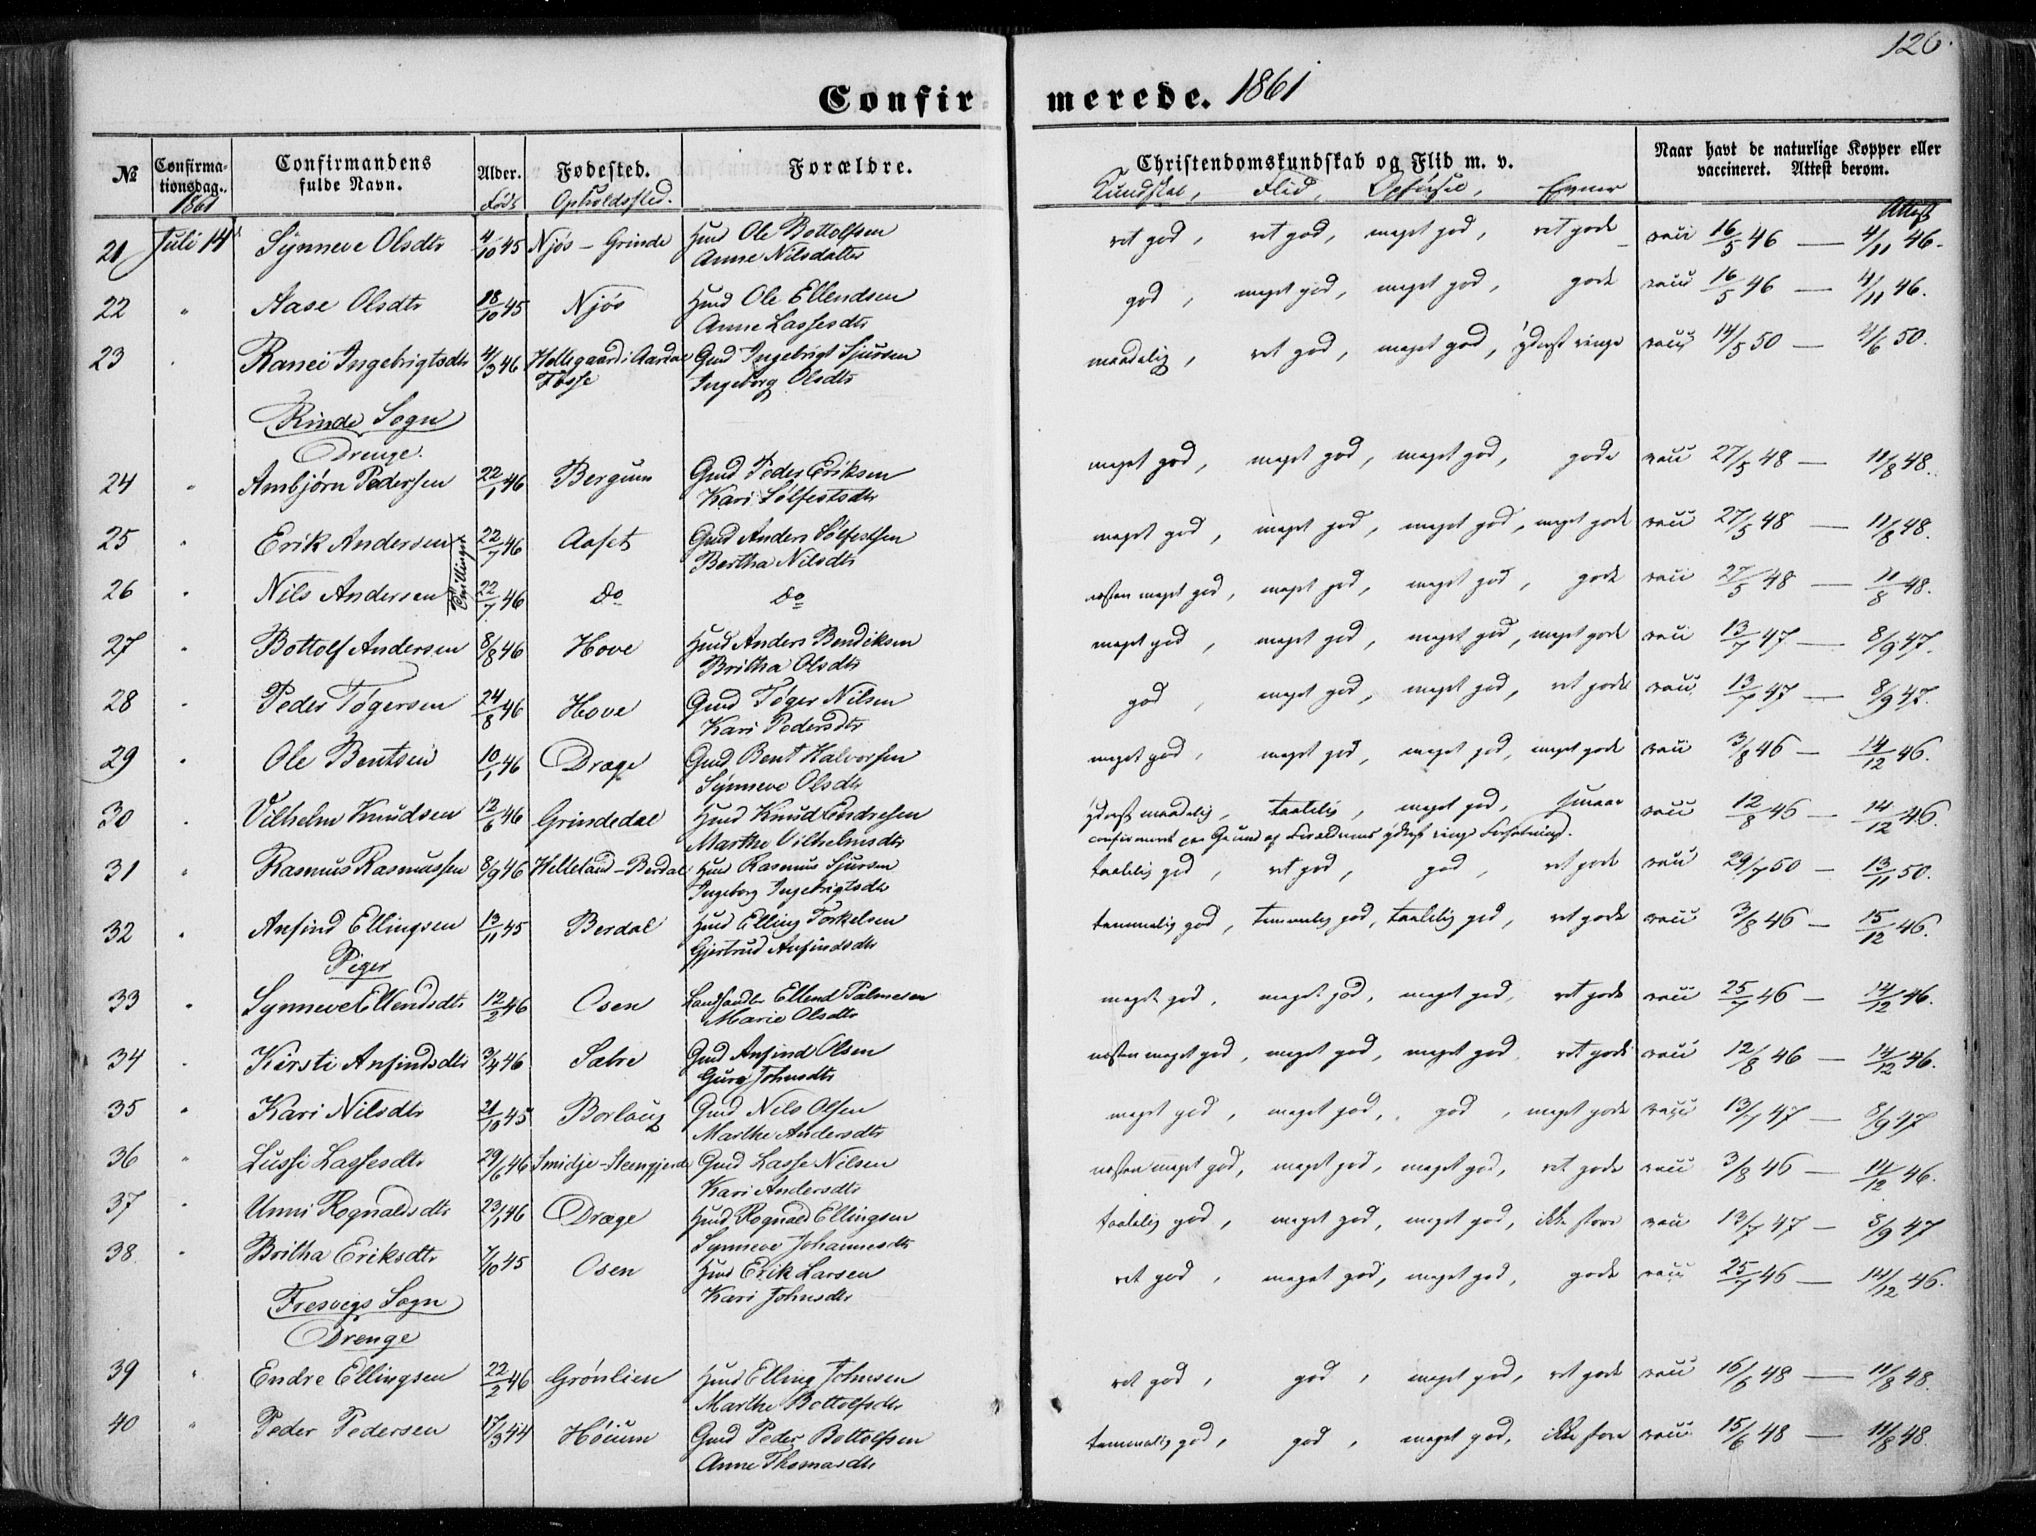 126.
Confirmerede. 1861
№ Confirmationsdag. 1861 Confirmandens fulde Navn. Alder. Født Fødested. Opholdssted. Forældre. Christendomskundskab og Flid m. v. Kundskab, Flid, Opførsel, Evner Naar havt de naturlige Kopper eller vaccineret. Attest derom. Attest
21 Juli 14 Synneve Olsdtr 4/10 45 Njøs - Grinde Hmd Ole Bottolfsen ret god, ret god, meget god, ret gode vacc 16/5 46 — 4/11 46.
Anne Nilsdatter
22 " Aase Olsdtr 18/10 45 Njøs Hmd Ole Ellendsen god, meget god, meget god, gode vacc 16/5 46 — 4/11 46.
Anne Lassesdtr
23 " Ranei Ingebrigtsdtr 4/3 46 Hollegaard i Aardal Gmd Ingebrigt Sjursen maadelig, ret god, meget god, yderst ringe vacc 14/5 50 — 2/6 50.
Fosse Ingeborg Olsdtr
Rinde Sogn
Drenge.
24 " Ambjørn Pedersen 22/1 46 Bergum Gmd Peder Eriksen meget god, meget god, meget god, gode vacc 27/5 48 — 11/8 48.
Kari Sølfestsdtr
25 " Erik Andersen Tvillinger 22/7 46 Aafet Gmd Anders Sølfestsen meget god, meget god, meget god, meget gode vacc 27/5 48 — 11/8 48.
Bertha Nilsdtr
26 " Nils Andersen 22/7 46 do do næsten meget god, meget god, meget god, gode vacc 27/5 48 — 11/8 48.
27 " Bottolf Andersen 8/8 46 Hove Hmd Anders Bendiksen meget god, meget god, meget god, meget gode vacc 13/7 47 — 8/9 47.
Britha Olsdtr
28 " Peder Tøgersen 24/8 46 Hove Gmd Tøger Nilsen god, meget god, meget god, ret gode vacc 13/7 47 — 8/9 47.
Kari Pedersdtr
29 " Ole Bentsen 10/1 46 Dræge Gmd Bent Halvorsen meget god, meget god, meget god, meget gode vacc 3/8 46 — 14/12 46.
Synneve Olsdtr
30 " Vilhelm Knudsen 12/6 46 Grindedal Hmd Knud Endresen yderst maadelig, taalelig, meget god, smaae vacc 12/8 46 — 14/12 46.
Marthe Vilhelmsdtr confirmeret paa Grund af Forældrenes yderst ringe Forfatning.
31 " Rasmus Rasmussen 8/9 46 Helleland - Berdal Hmd Rasmus Sjursen taalelig god, ret god, god, ret gode vacc 29/7 50 — 13/11 50.
Ingeborg Ingebrigtsdtr
32 " Anfind Ellingsen 13/11 45 Berdal Hmd Elling Torkelsen temmelig god, temmelig god, taalelig god, ret gode vacc 3/8 46 — 15/12 46.
Gjertrud Anfindsdtr
Piger
33 " Synneve Ellendsdtr 12/2 46 Osen Landhandler Ellend Palmesen meget god, meget god, meget god, ret gode vacc 25/7 46 — 14/12 46.
Marie Olsdtr
34 " Kirsti Anfindsdtr 3/4 46 Sælre Gmd Anfind Olsen næsten meget god, meget god, meget god, ret gode vacc 12/8 46 — 14/12 46.
Guro Johnsdtr
35 " Kari Nilsdtr 21/10 45 Borlaug Gmd Nils Olsen meget god, meget god, god, meget gode vacc 13/7 47 — 8/9 47
Marthe Andersdtr
36 " Lussi Lassesdtr 29/6 46 Smidje-Steengjerde Gmd Lasse Nilsen næsten meget god, meget god, meget god, ret gode vacc 3/8 46 — 14/12 46.
Kari Andersdtr
37 " Unni Rognaldsdtr 23/1 46 Dræge Hmd Rognald Ellingsen taalelig god, meget god, meget god, ikke store vacc 13/7 47 — 8/9 47
Synneve Johannesdtr
38 " Britha Eriksdtr 7/10 45 Osen Hmd Erik Larsen ret god, meget god, meget god, gode vacc 25/7 46 — 14/12 46.
Kari Johnsdtr
Fresvigs Sogn
Drenge
39 " Endre Ellingsen 22/2 46 Grønlien Hmd Elling Johnsen ret god, god, meget god, ret gode vacc 16/6 48 — 11/8 48.
Marthe Bottolfsdtr
40 " Peder Pedersen 17/3 44 Høium Gmd Peder Bottolfsen temmelig god, god, meget god, ikke store vacc 15/6 48 — 11/8 48.
Anne Thomasdtr